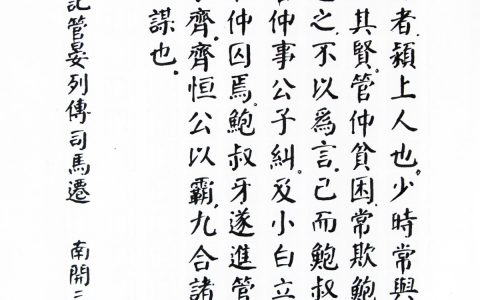 者。潁上人也。少時常與
其賢。管仲貧困。常欺鮑
之。不以爲言。已而鮑叔
仲事公子糾。及小白立
仲囚焉。鮑叔牙遂進管
齊。齊恒公以霸。九合諸
謀也。
記管晏列傳司馬遷 南開二